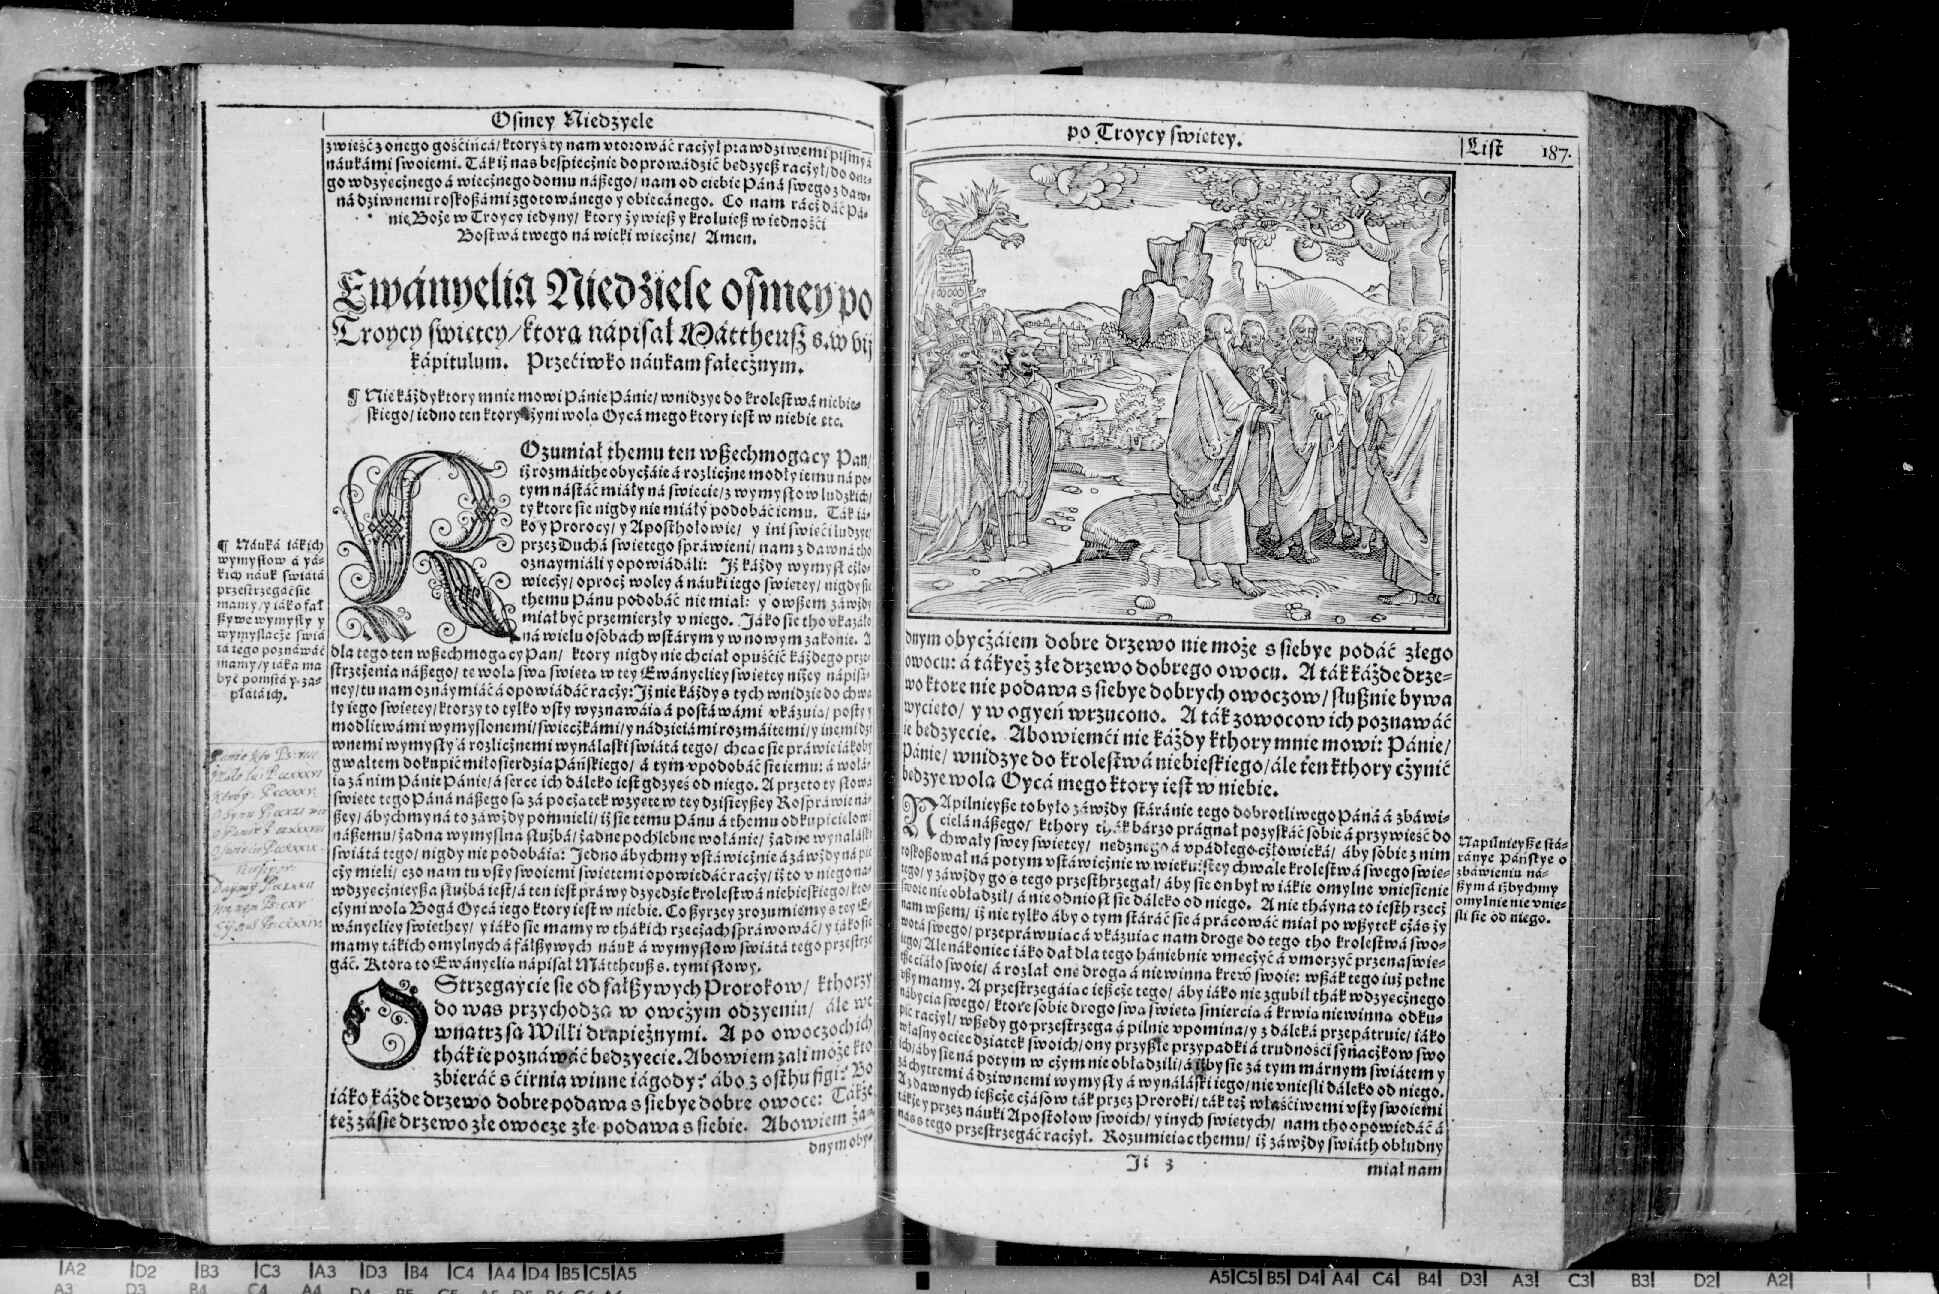 Osmey Niedzyele
zwieść z onego gośćińcá/ ktoryś ty nam vtorowáć raczył prawdziwemi pismy á
náukámi swoiemi. Ták iż nas bespiecznie doprowádzić bedzyesz raczył/ do one-
go wdzyecznego á wiecznego domu nászego/ nam od ciebie Páná swego z daw-
ná dziwnemi roskoszámi zgotowánego y obiecánego. Co nam rácz dáć Pá-
nie Boże w Troycy iedyny/ ktory żywiesz y kroluiesz w iedności
Bostwá twego ná wieki wieczne/ Amen.
Ewányelia Niedziele osmey po
Troycy swietey/ ktora nápisał Máttheusz s. w vij
kápitulum. Przećiwko náukam fałecznym.
¶ Nie káżdy ktory mnie mowi Pánie Pánie/ wnidzye do krolestwá niebie-
skiego/ iedno ten ktory czyni wola Oycá mego ktory iest w niebie etc.
ROzumiał themu ten wszechmogący Pan/
iż rozmáithe obyczáie á rozliczne modły iemu ná po-
tym nástáć miáły ná swiecie/ z wymysłow ludzkich/
ty ktore sie nigdy nie miáły podobáć iemu. Ták iá-
ko y Prorocy/ y Apostholowie/ y ini swieci ludzye/
przez Duchá swietego spráwieni/ nam z dawná tho
oznaymiáli y opowiádáli: Iż káżdy wymysł czło-
wieczy/ oprocz woley á náuki iego swietey/ nigdy sie
themu Pánu podobáć nie miał: y owszem záwżdy
miał być przemierzły v niego. Jáko sie tho vkazáło
ná wielu osobach w stárym y w nowym zakonie. A
dla tego ten wszechmogący Pan/ ktory nigdy nie chciał opuścić káżdego prze-
strzeżenia nászego/ te wola swa swieta w tey Ewányeliey swietey niżey nápisá-
ney/ tu nam oznáymiáć á opowiádáć raczy: Iż nie káżdy s tych wnidzie do chwa
ły iego swietey/ ktorzy to tylko vsty wyznawáia á postáwámi vkázuia/ posty y
modlitwámi wymyslonemi/ swieczkámi/ y nádzieiámi rozmáitemi/ y inemi dzi
wnemi wymysły á rozlicznemi wynálaski swiátá tego/ chcac sie práwie iákoby
gwałtem dokupić miłosierdzia Páńskiego/ á tym vpodobáć sie iemu: á wołá-
ia zá nim Pánie Pánie/ á serce ich dáleko iest gdzyeś od niego. A przeto ty słowá
swiete tego Páná nászego sa zá poczatek wzyete w tey dzisieyszey Rospráwie ná-
szey/ ábychmy ná to záwżdy pomnieli/ iż sie temu Pánu á themu odkupicielowi
nászemu/ żadna wymyślna służbá/ żadne pochlebne wołánie/ żadne wynáláski
swiátá tego/ nigdy nie podobáia: Jedno ábychmy vstáwicznie á záwżdy ná pie
czy mieli/ czo nam tu vsty swoiemi swietemi opowiedáć raczy/ iż to v niego na-
wdzyecznieysza służbá iest/ á ten iest práwy dzyedzic krolestwá niebieskiego/ kto-
czyni wola Bogá Oycá iego ktory iest w niebie. Co szyrzey zrozumiemy s tey E-
wányeliey swiethey/ y iáko sie mamy w thákich rzeczách spráwowáć/ y iáko sie
mamy tákich omylnych á fálszywych náuk á wymysłow swiátá tego przestrze
gáć. Ktora to Ewányelia nápisał Máttheusz s. tymi słowy.
OStrzegaycie sie od fałszywych Prorokow/ kthorzy
do was przychodza w owczym odzyeniu/ ále we
wnatrz sa Wilki drapieżnymi. A po owoczoch ich
thák ie poznáwáć bedzyecie. Abowiem zali może kto
zbieráć s ćirnia winne iágody: ábo z osthu figi: Bo
iáko káżde drzewo dobre podawa s siebye dobre owoce: Tákże
też zásie drzewo złe owocze złe podawa s siebie. Abowiem ża-
dnym oby-
¶ Náuká iákich
wymysłow á yá-
kich náuk swiátá
przestrzegáć sie
mamy/ y iáko fał
szywe wymysły y
wymyslácze swiá
tá tego poznáwáć
mamy/ y iáka ma
być pomstá y zá-
płátá ich.
po Troycy swietey.
List 187.
dnym obyczáiem dobre drzewo nie może s siebye podáć złego
owocu: á tákyeż złe drzewo dobrego owocu. A ták káżde drze-
wo ktore nie podawa s siebye dobrych owoczow/ słusznie bywa
wycieto/ y w ogyeń wrzucono. A ták z owocow ich poznawáć
ie bedzyecie. Abowiemći nie káżdy kthory mnie mowi: Pánie/
Pánie/ wnidzye do krolestwá niebieskiego/ ále ten kthory czynić
bedzye wola Oycá mego ktory iest w niebie.
NApilnieysze to było záwżdy stáránie tego dobrotliwego Páná á zbáwi-
cielá nászego/ kthory thák bárzo prágnał pozyskáć sobie á przywieść do
chwały swey swietey/ nedznego á vpádłego człowieká/ áby sobie z nim
roskoszował ná potym vstáwicznie w wiekuistey chwale krolestwá swego swie-
tego/ y záwżdy go s tego przesthrzegał/ áby sie on był w iákie omylne vniesienie
swoie nie obładził/ á nie odniosł sie dáleko od niego. A nie tháyna to iesth rzecz
nam wszem/ iż nie tylko áby o tym stáráć sie á prácowáć miał po wszytek czás ży
wotá swego/ przepráwuiac á vkázuiac nam droge do tego tho krolestwá swo-
iego/ Ale nákoniec iáko dał dla tego hániebnie vmeczyć á vmorzyć przenaswie-
tsze ciáło swoie/ á rozlał one droga á niewinna krew swoie: wszák tego iuż pełne
vszy mamy. A przestrzegáiac ieszcze tego/ áby iáko nie zgubił thák wdzyecznego
nábycia swego/ ktore sobie drogo swa swieta smiercia á krwia niewinna odku-
pić raczył/ wszedy go przestrzega á pilnie vpomina/ y z dáleká przepátruie/ iáko
własny ociec dziatek swoich/ ony przyszłe przypadki á trudności synaczkow swo
ich/ áby sie ná potym w czym nie obładzili/ á iżby sie zá tym márnym swiátem y
zá chytremi á dziwnemi wymysły á wynáláski iego/ nie vniesli dáleko od niego.
A z dawnych ieszcze czásow ták przez Proroki/ ták też właściwemi vsty swoiemi
tákże y przez náuki Apostołow swoich/ y inych swietych/ nam tho opowiedáć á
nas s tego przestrzegáć raczył. Rozumieiac themu/ iż záwżdy swiáth obłudny
Ii 3
miał nam
Napilnieysze stá-
ránye Páńskye o
zbáwieniu ná-
szym á iżbychmy
omylnie nie vnie-
sli sie od niego.
A2 D2 B3 C3 A3 D3 B4 C4 A4 D4 B5 C5 A5
A5 C5 B5 D4 A4 C4 B4 D3 A3 C3 B3 D2 A2